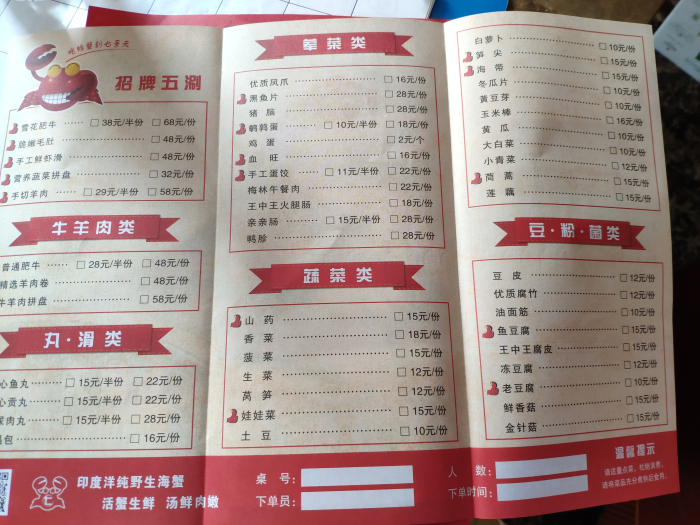 招牌五涮
雪花肥牛 38元/半份 68元/份
脆嫩毛肚 48元/份
手工鲜虾滑 48元/份
营养蔬菜拼盘 32元/份
手切羊肉 29元/半份 58元/份
牛羊肉类
普通肥牛 28元/半份 48元/份
精选羊肉卷 48元/份
牛羊肉拼盘 58元/份
丸·滑类
心鱼丸 15元/半份 22元/份
心贡丸 15元/半份 22元/份
尿肉丸 15元/半份 28元/份
包 16元/份
印度洋纯野生海蟹
活蟹生鲜 汤鲜肉嫩
荤菜类
优质凤爪 16元/份
黑鱼片 28元/份
猪脑 28元/份
鹌鹑蛋 10元/半份 18元/份
鸡蛋 2元/个
血旺 16元/份
手工蛋饺 11元/半份 22元/份
梅林午餐肉 22元/份
王中王火腿肠 18元/份
亲亲肠 15元/半份 28元/份
鸭胗 28元/份
蔬菜类
山药 15元/份
香菜 18元/份
菠菜 15元/份
生菜 12元/份
莴笋 12元/份
娃娃菜 15元/份
土豆 10元/份
桌号：
下单员：
白萝卜 10元/份
笋尖 15元/份
海带 15元/份
冬瓜片 10元/份
黄豆芽 10元/份
玉米棒 16元/份
黄瓜 10元/份
大白菜 10元/份
小青菜 12元/份
茼蒿 15元/份
莲藕 15元/份
豆·粉·菌类
豆皮 12元/份
优质腐竹 12元/份
油面筋 10元/份
鱼豆腐 15元/份
王中王腐皮 15元/份
冻豆腐 12元/份
老豆腐 10元/份
鲜香菇 15元/份
金针菇 15元/份
人数：
下单时间：
温馨提示
请适量点菜，杜绝浪费。
请将菜品充分煮熟后食用。